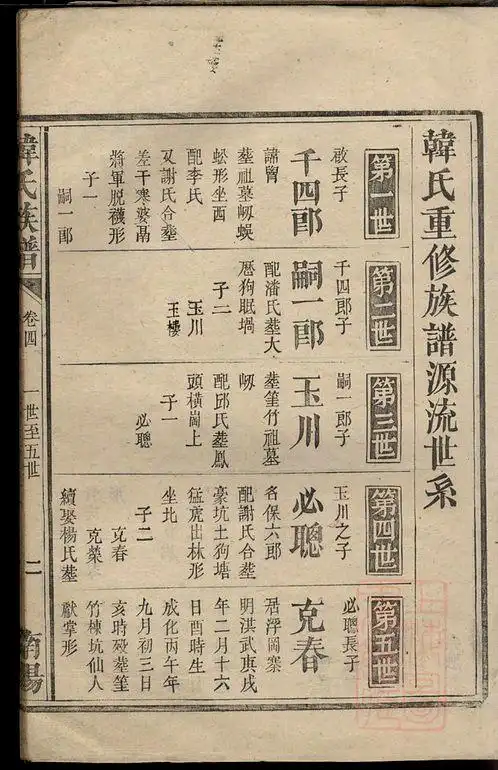 韓氏重修族譜源流世系
第一世
啟長子
千四郎
諱胷
塟祖墓㘭蜈
蚣形坐酉
配李氏
又謝氏合塟
差干寒婆咼
將軍脫襪形
子一
嗣一郎
第二世
千四郎子
嗣一郎
配潘氏塟大
厝狗眠堝
子二
玉川
玉樓
第三世
嗣一郎子
玉川
塟篁竹祖墓
㘭
配邱氏塟鳳
頭橫崗上
子一
必聰
第四世
玉川之子
必聰
名保六郎
配謝氏合塟
豪坑土狗塘
猛虎出林形
坐北
子二
克春
克榮
續娶楊氏塟
第五世
必聰長子
克春
居浮岡寨
明洪武庚戌
年二月十六
日酉時生
成化丙午年
九月初三日
亥時殁塟篁
竹棟坑仙人
獻掌形
韓氏族譜
卷四
一世至五世
二
南陽